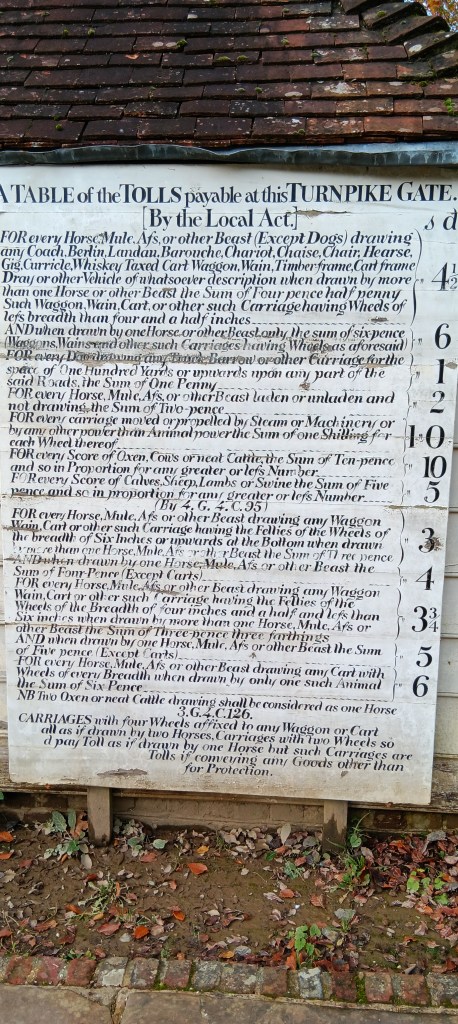 A TABLE of the TOLLS payable at this TURNPIKE GATE.
[By the Local Act.] s d
FOR every Horse, Mule, Afs, or other Beast (Except Dogs) drawing
any Coach, Berlin, Landau, Barouche, Chariot, Chaise, Chair, Hearse,
Gig, Curricle, Whiskey Taxed Cart Waggon, Wain, Timber frame, Cart frame
Dray or other Vehicle of whatsoever description when drawn by more
than one Horse or other Beast the Sum of Four pence half penny
Such Waggon, Wain, Cart, or other such Carriage having Wheels of
lefs breadth than four and a half inches " 4 1/2
AND when drawn by one Horse or other Beast only the sum of sixpence
(Waggons, Wains and other such Carriages having Wheels as aforesaid) " 6
FOR every Dog drawing any Truck, Barrow or other Carriage for the
space of One Hundred Yards or upwards upon any part of the
said Roads, the Sum of One Penny " 1
FOR every Horse, Mule, Afs, or other Beast laden or unladen and
not drawing, the Sum of Two-pence " 2
FOR every carriage moved or propelled by Steam or Machinery or
by any other power than Animal power the Sum of one Shilling for
each Wheel thereof 1"0
FOR every Score of Oxen, Cows or neat Cattle, the Sum of Ten-pence
and so in Proportion for any greater or lefs Number " 10
FOR every Score of Calves, Sheep, Lambs or Swine the Sum of Five
pence and so in proportion for any greater or lefs Number " 5
(By 4. G. 4. C. 95)
FOR every Horse, Mule, Afs or other Beast drawing any Waggon
Wain, Cart or other such Carriage having the Fellies of the Wheels of
the breadth of Six Inches or upwards at the Bottom when drawn
by more than one Horse, Mule, Afs or other Beast the Sum of Three pence " 3
AND when drawn by one Horse, Mule, Afs or other Beast the
Sum of Four Pence (Except Carts) " 4
FOR every Horse, Mule, Afs or other Beast drawing any Waggon
Wain, Cart or other such carriage having the Fellies of the
Wheels of the Breadth of four inches and a half and lefs than
Six inches when drawn by more than one Horse, Mule, Afs or
other Beast the Sum of Three-pence three farthings " 3 3/4
AND when drawn by one Horse, Mule, Afs or other Beast the Sum
of Five pence (Except Carts) " 5
FOR every Horse, Mule, Afs or other Beast drawing any Cart with
Wheels of every Breadth when drawn by only one such Animal
the Sum of Six Pence " 6
NB Two Oxen or neat Cattle drawing shall be considered as one Horse
3. G. 4. C. 126.
CARRIAGES with four Wheels affixed to any Waggon or Cart
all as if drawn by two Horses, Carriages with two Wheels so
d pay Toll as if drawn by one Horse but such Carriages are
Tolls if conveying any Goods other than
for Protection.